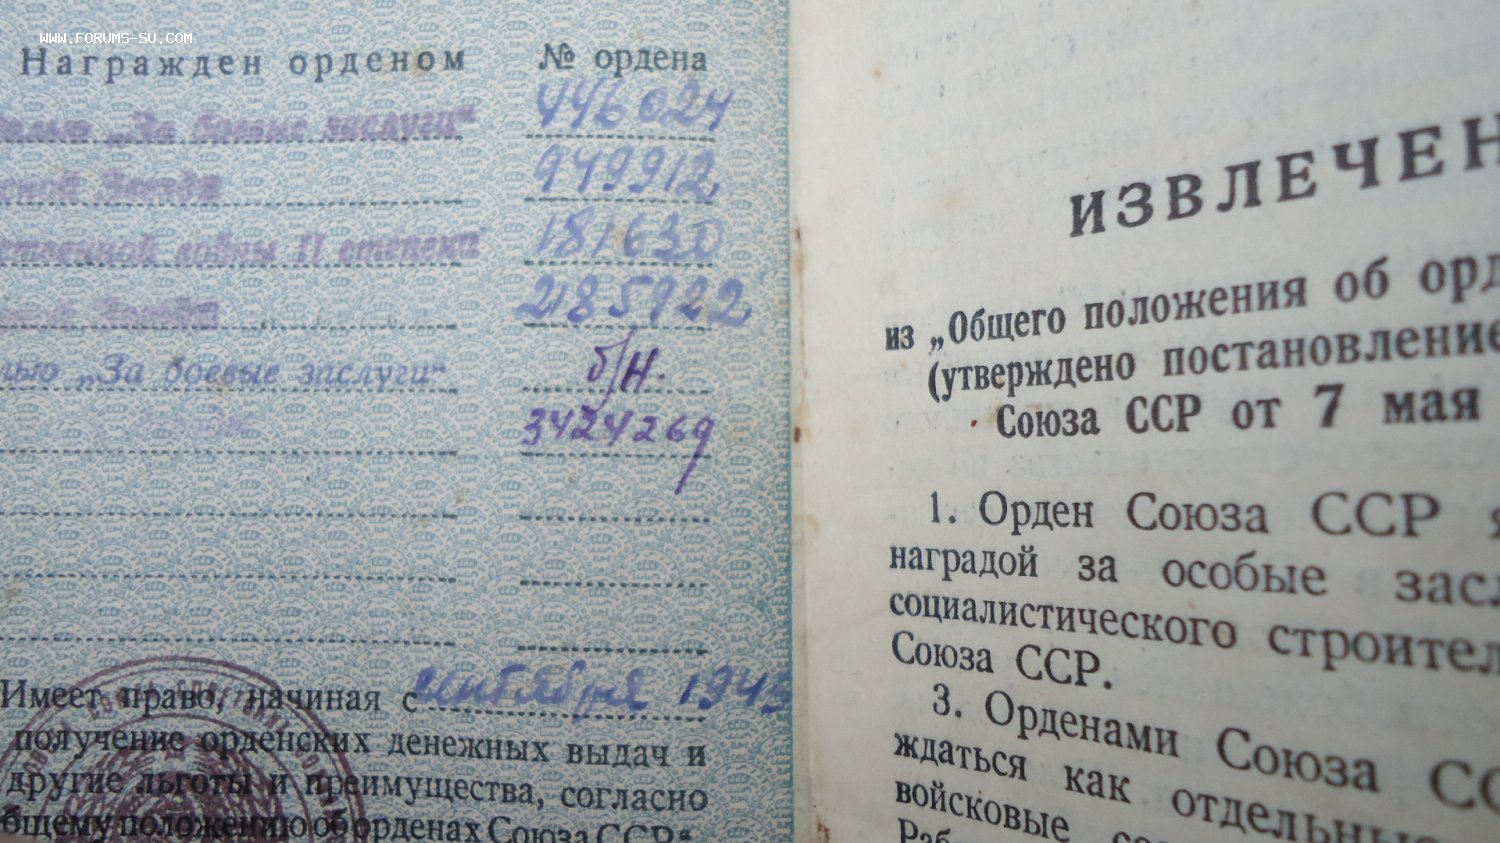 WWW.FORUMS-SU.COM
Награжден орденом № ордена
„За боевые заслуги“ 446024
Звезда 949912
ственной войны II степени 181630
Звезда 2185922
лью „За боевые заслуги“ б/н.
3424269
Имеет право, начиная с сентября 1943
получение орденских денежных выдач и
другие льготы и преимущества, согласно
бщему положению об орденах Союза ССР“
ИЗВЛЕЧЕН
из „Общего положения об орд
(утверждено постановление
Союза ССР от 7 мая
1. Орден Союза ССР я
наградой за особые засл
социалистического строител
Союза ССР.
3. Орденами Союза СС
ждаться как отдельны
войсковые со
Раб